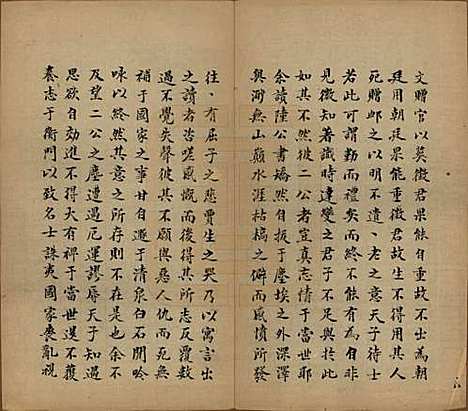 文贈官以莫徵君果能自重故不出為朝
廷用朝廷果能重徵君故生不得用其人
死贈郎之以明不遺、老之意天子待士
若此可謂勤而禮矣而終不能有為自非
見徵知著識時達變之君子不足與於此
如其不然彼二公者豈真忘情于當世耶
余讀陸公書矯然自扳于塵埃之外深澤
與漪無山巔水涯枯槁之僻而感憤所發
往、有屈子之悲賈生之哭乃以寓言出
之讀者咨嗟感慨而後得其所志反覆數
過不覺失聲彼其不願與惡人仇而死委
補于國家之事甘自放于清泉白石間吟
咏以終然其意之所存則不可掩是余不
及望二公之塵遭遇厄運謬辱天子知遇
思欲自効進不得大有裨于當世退不獲
養志于衡門以致名士誅夷國家喪亂視